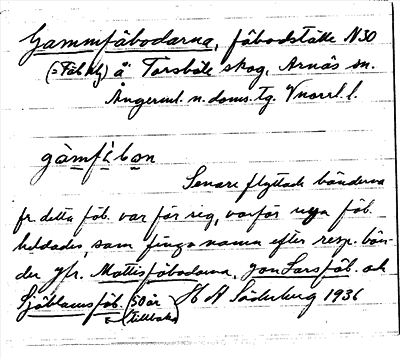 Gammfäbodarna, fäbodställe NSO
(=Fäb.kl) å Torsböle skog, Arnäs sn.
Ångerml. n. doms. tg. Vnorrl. l.
gàmfɩ̀ban
Senare flyttade bönderna
fr. detta fäb. var för sig, varför nya fäb.
bildades, som fingo namn efter resp. bön-
der jfr. Mattisfäbodarna, Jon Larsfäb. och
Sjöblomsfäb. 50 år H A Söderberg 1936
tillbaka